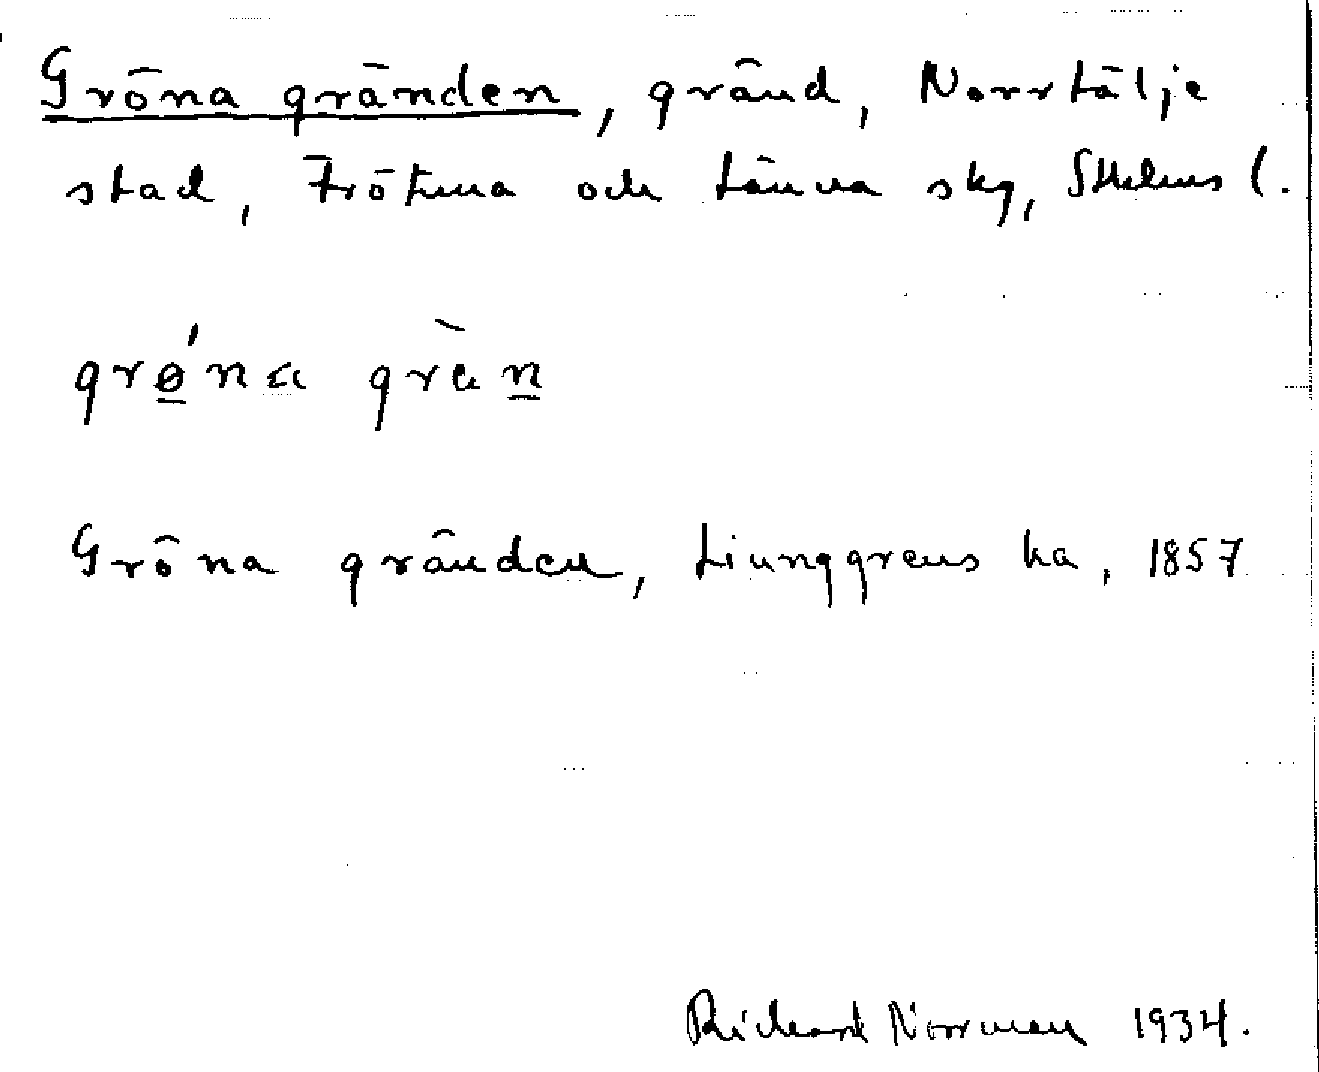 Gröna gränden, gränd, Norrtälje
stad, Frötuna och Länna skg, Sthlms l.
grǿna grän
Gröna gränden, Liunggrens ka, 1857
Richard Norrman 1934.